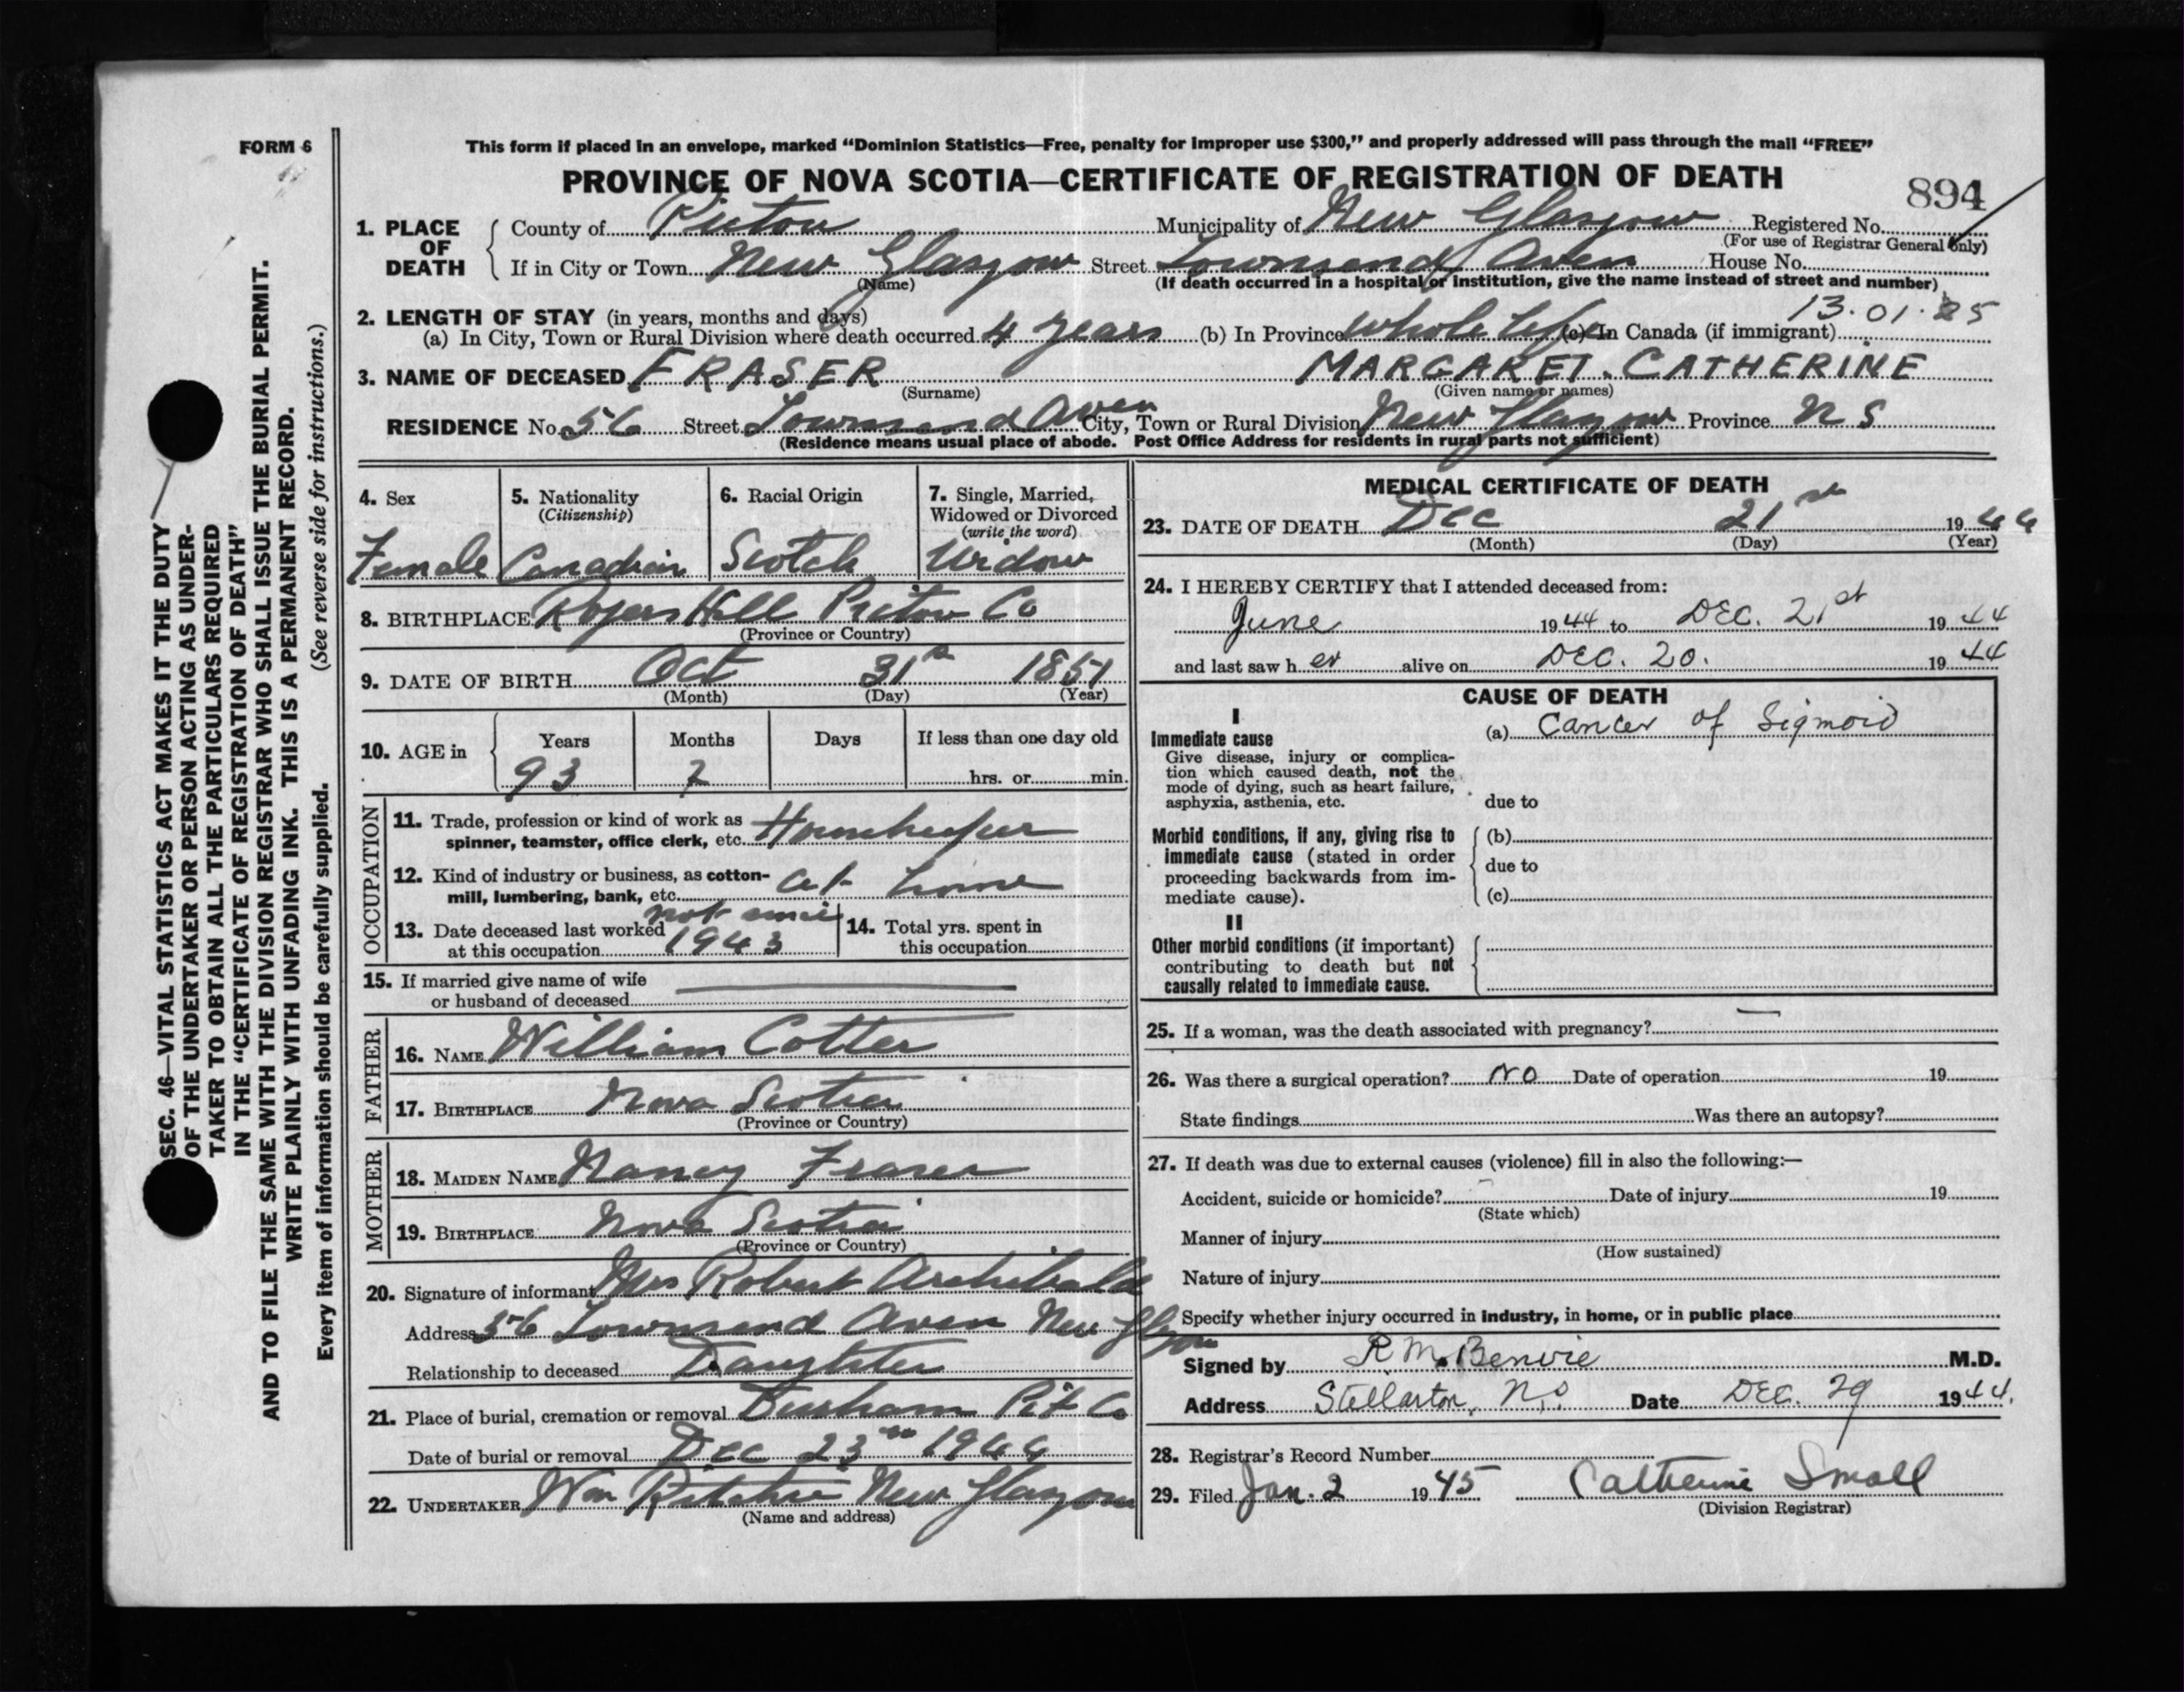 FORM 6
This form if placed in an envelope, marked “Dominion Statistics—Free, penalty for improper use $300,” and properly addressed will pass through the mail “FREE”
PROVINCE OF NOVA SCOTIA—CERTIFICATE OF REGISTRATION OF DEATH
894
1. PLACE OF DEATH
County of Pictou Municipality of New Glasgow Registered No.
(For use of Registrar General only)
If in City or Town New Glasgow Street Townsend Aven House No.
(Name) (If death occurred in a hospital or institution, give the name instead of street and number)
13.01.25
2. LENGTH OF STAY (in years, months and days)
(a) In City, Town or Rural Division where death occurred 4 years (b) In Province Whole Life (c) In Canada (if immigrant)
3. NAME OF DECEASED FRASER MARGARET. CATHERINE
(Surname) (Given name or names)
RESIDENCE No. 56 Street Townsend Aven City, Town or Rural Division New Glasgow Province N S
(Residence means usual place of abode. Post Office Address for residents in rural parts not sufficient)
4. Sex
Female
5. Nationality
(Citizenship)
Canadian
6. Racial Origin
Scotch
7. Single, Married,
Widowed or Divorced
(write the word)
Widow
8. BIRTHPLACE Rogers Hill Pictou Co
(Province or Country)
9. DATE OF BIRTH Oct 31st 1851
(Month) (Day) (Year)
10. AGE in
Years Months Days If less than one day old
93 2 hrs. or min.
OCCUPATION
11. Trade, profession or kind of work as
spinner, teamster, office clerk, etc. Housekeeper
12. Kind of industry or business, as cotton-
mill, lumbering, bank, etc. at home
13. Date deceased last worked not since
at this occupation 1943
14. Total yrs. spent in
this occupation
15. If married give name of wife
or husband of deceased
FATHER
16. NAME William Cotter
17. BIRTHPLACE Nova Scotia
(Province or Country)
MOTHER
18. MAIDEN NAME Nancy Fraser
19. BIRTHPLACE Nova Scotia
(Province or Country)
20. Signature of informant Mrs Robert Archibald
Address 56 Townsend Aven New Glasgow
Relationship to deceased Daughter
21. Place of burial, cremation or removal Durham Pit Co
Date of burial or removal Dec 23rd 1944
22. UNDERTAKER Wm Ritchie New Glasgow
(Name and address)
MEDICAL CERTIFICATE OF DEATH
23. DATE OF DEATH Dec 21st 1944
(Month) (Day) (Year)
24. I HEREBY CERTIFY that I attended deceased from:
June 1944 to DEC. 21st 1944
and last saw her alive on DEC. 20. 1944
CAUSE OF DEATH
I
Immediate cause
Give disease, injury or complica-
tion which caused death, not the
mode of dying, such as heart failure,
asphyxia, asthenia, etc.
(a) Cancer of Sigmoid
due to
Morbid conditions, if any, giving rise to
immediate cause (stated in order
proceeding backwards from im-
mediate cause).
(b)
due to
(c)
II
Other morbid conditions (if important)
contributing to death but not
causally related to immediate cause.
25. If a woman, was the death associated with pregnancy? —
26. Was there a surgical operation? NO Date of operation 19
State findings Was there an autopsy?
27. If death was due to external causes (violence) fill in also the following:—
Accident, suicide or homicide? Date of injury 19
(State which)
Manner of injury
(How sustained)
Nature of injury
Specify whether injury occurred in industry, in home, or in public place
Signed by R M. Benvie M.D.
Address Stellarton, N.S. Date DEC. 29 1944.
28. Registrar's Record Number
29. Filed Jan. 2 1945 Catherine Small
(Division Registrar)
SEC. 46—VITAL STATISTICS ACT MAKES IT THE DUTY
OF THE UNDERTAKER OR PERSON ACTING AS UNDER-
TAKER TO OBTAIN ALL THE PARTICULARS REQUIRED
IN THE “CERTIFICATE OF REGISTRATION OF DEATH”
AND TO FILE THE SAME WITH THE DIVISION REGISTRAR WHO SHALL ISSUE THE BURIAL PERMIT.
WRITE PLAINLY WITH UNFADING INK. THIS IS A PERMANENT RECORD.
Every item of information should be carefully supplied. (See reverse side for instructions.)